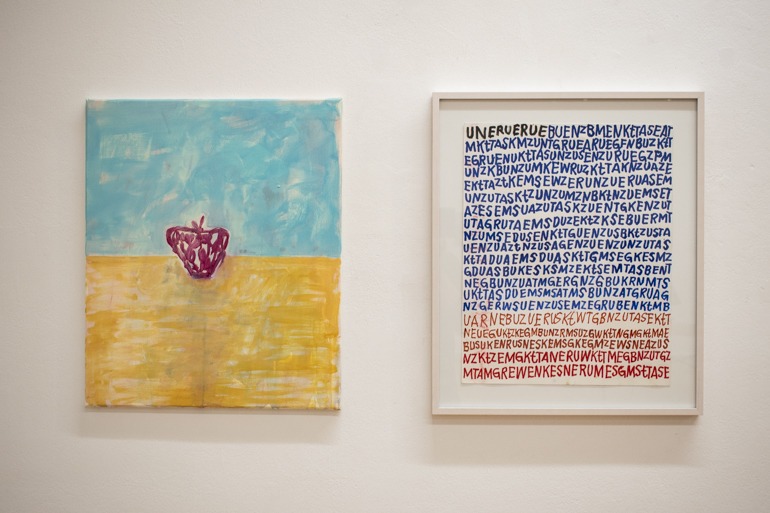 UNERUERUEBUENZBMENKtTASEAT
MKtTASKMZUNTGRUEARUEGFNBUZKtT
EGRUENUKtTASUNZUSENZURUEGZPM
UNZKBUNZUMKEWRUZKtTAKNZUAZE
EKtTAZTKEMSEWZERUNZUERUASEM
UNZUTASKtZUNZUMZNBKtNZUEMSET
AZESEMSUAZUTASKZUENTGKENZUT
UTAGRUTAEMSDUZEKtZKSEBUERMT
NZUMSEDUSENKtTGUENZUSBKtZUSTA
UENZUAZTNZUSAGENZUENZUNZUTAS
KtTADUAEMSDUASKtTGMSEGKESMZ
GDUASBUKESKSMZEKtSEMTASBENT
NEGBUNZUATMGERGNZGBUKRNMTS
UKtTASDUEMSMSATMSBUNZATGRUAG
NZGERWSUENZUSEMZEGRUBENKtMB
UARNEBUZUERUSKtWTGBNZUTASEKtT
NEUEGUKtZKEGMBUNZRMSUZGWKtTNGMGKtMAE
BUSUKENRUSNESKEMSGKEGMZEWSNEAZUS
NZKtZEMGKtTANERUWKtTMEGBNZUTGZ
MTAMGREWENKESNERUMESGMStTASE